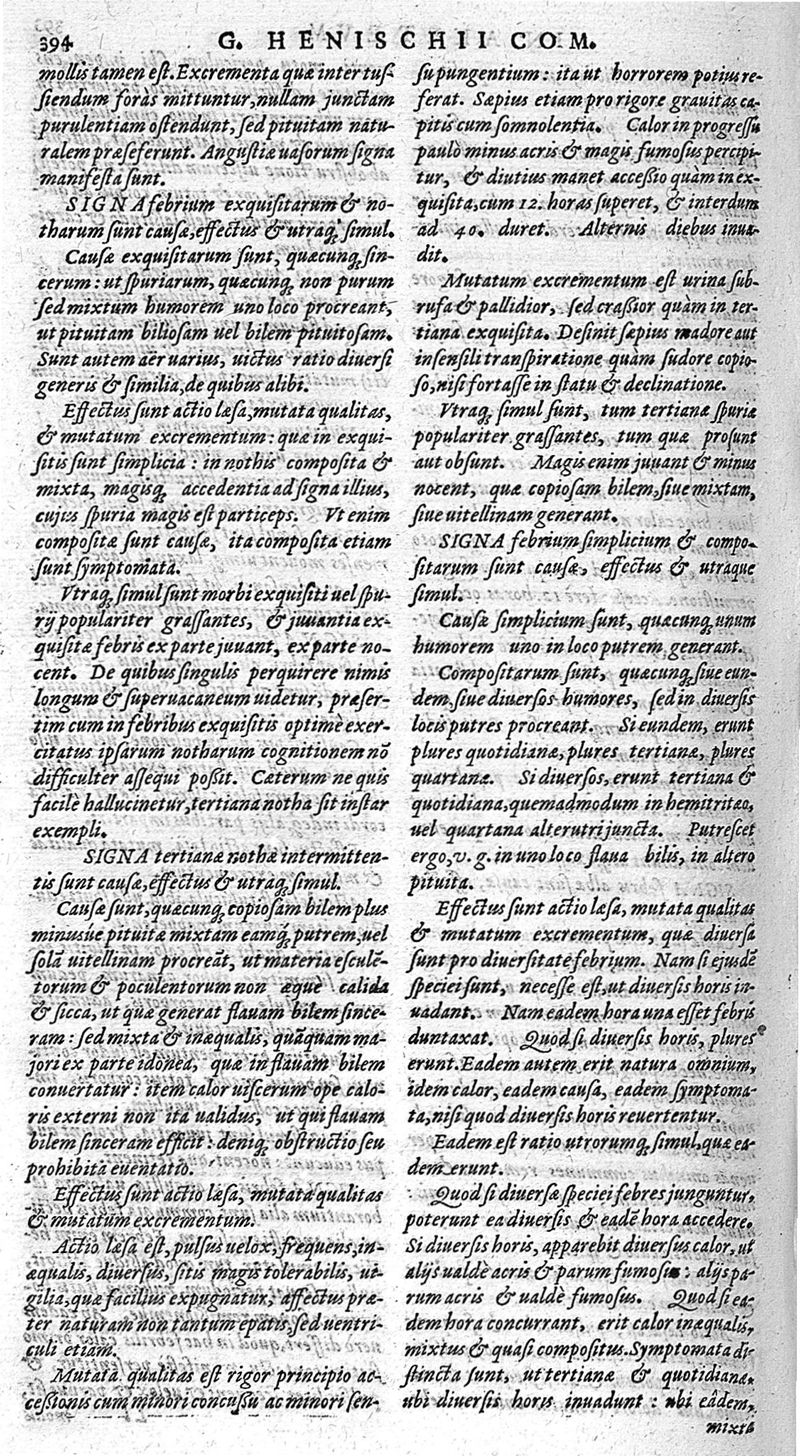 394
G. HENISCHII COM.
mollis tamen est. Excrementa quæ inter tuſ-
ſiendum foràs mittuntur, nullam junctam
purulentiam oſtendunt, ſed pituitam natu-
ralem præſeferunt. Anguſtiæ uaſorum ſigna
manifeſta ſunt.
SIGNA febrium exquiſitarum & no-
tharum ſunt cauſæ, effectus & utraq; ſimul.
Cauſæ exquiſitarum ſunt, quæcunq; ſin-
cerum: ut ſpuriarum, quæcunq; non purum
ſed mixtum humorem uno loco procreant,
ut pituitam bilioſam uel bilem pituitoſam.
Sunt autem aër uarius, uictus ratio diuerſi
generis & ſimilia, de quibus alibi.
Effectus ſunt actio læſa, mutata qualitas,
& mutatum excrementum: quæ in exqui-
ſitis ſunt ſimplicia: in nothis compoſita &
mixta, magisq; accedentia ad ſigna illius,
cujus ſpuria magis eſt particeps. Vt enim
compoſitæ ſunt cauſæ, ita compoſita etiam
ſunt ſymptomata.
Vtraq; ſimul ſunt morbi exquiſiti uel ſpu-
rij populariter graſſantes, & juuantia ex-
quiſitæ febris ex parte juuant, ex parte no-
cent. De quibus ſingulis perquirere nimis
longum & ſuperuacaneum uidetur, præſer-
tim cum in febribus exquiſitis optimè exer-
citatus ipſarum notharum cognitionem nō
difficulter aſſequi poßit. Cæterum ne quis
facilè hallucinetur, tertiana notha ſit inſtar
exempli.
SIGNA tertianæ nothæ intermitten-
tis ſunt cauſæ, effectus & utraq; ſimul.
Cauſæ ſunt, quæcunq; copioſam bilem plus
minusúe pituitæ mixtam eamq́; putrem, uel
ſolā uitellinam procreāt, ut materia eſculē-
torum & poculentorum non æquè calida
& ſicca, ut quæ generat flauam bilem ſince-
ram: ſed mixta & inæqualis, quāquam ma-
jori ex parte idonea, quæ in flauam bilem
conuertatur: item calor uiſcerum ope calo-
ris externi non ita ualidus, ut qui flauam
bilem ſinceram efficit: deniq; obſtructio ſeu
prohibita euentatio.
Effectus ſunt actio læſa, mutata qualitas
& mutatum excrementum.
Actio læſa eſt, pulſus uelox, frequens, in-
æqualis, diuerſus, ſitis magis tolerabilis, ui-
gilia, quæ facilius expugnatur, affectus præ-
ter naturam non tantum epatis, ſed uentri-
culi etiam.
Mutata qualitas eſt rigor principio ac-
ceſſionis cum minori concuſſu ac minori ſen-
ſu pungentium: ita ut horrorem potius re-
ferat. Sæpius etiam pro rigore grauitas ca-
pitis cum ſomnolentia. Calor in progreſſu
paulò minus acris & magis fumoſus percipi-
tur, & diutius manet acceßio quàm in ex-
quiſita, cum 12. horas ſuperet, & interdum
ad 40. duret. Alternis diebus inua-
dit.
Mutatum excrementum eſt urina ſub-
rufa & pallidior, ſed craßior quàm in ter-
tiana exquiſita. Deſinit ſæpius madore aut
inſenſili tranſpiratione quàm ſudore copio-
ſo, niſi fortaſſe in ſtatu & declinatione.
Vtraq; ſimul ſunt, tum tertianæ ſpuriæ
populariter graſſantes, tum quæ proſunt
aut obſunt. Magis enim juuant & minus
nocent, quæ copioſam bilem, ſiue mixtam,
ſiue uitellinam generant.
SIGNA febrium ſimplicium & compo-
ſitarum ſunt cauſæ, effectus & utraque
ſimul.
Cauſæ ſimplicium ſunt, quæcunq; unum
humorem uno in loco putrem generant.
Compoſitarum ſunt, quæcunq; ſiue eun-
dem, ſiue diuerſos humores, ſed in diuerſis
locis putres procreant. Si eundem, erunt
plures quotidianæ, plures tertianæ, plures
quartanæ. Si diuerſos, erunt tertiana &
quotidiana, quemadmodum in hemitritæo,
uel quartana alterutri juncta. Putreſcet
ergo, v. g. in uno loco flaua bilis, in altero
pituita.
Effectus ſunt actio læſa, mutata qualitas
& mutatum excrementum, quæ diuerſa
ſunt pro diuerſitate febrium. Nam ſi ejuſdē
ſpeciei ſunt, neceſſe eſt, ut diuerſis horis in-
uadant. Nam eadem hora una eſſet febris
duntaxat. Quod ſi diuerſis horis, plures
erunt. Eadem autem erit natura omnium,
idem calor, eadem cauſa, eadem ſymptoma-
ta, niſi quod diuerſis horis reuertentur.
Eadem eſt ratio utrorumq; ſimul, quæ ea-
dem erunt.
Quod ſi diuerſæ ſpeciei febres junguntur,
poterunt ea diuerſis & eadē hora accedere.
Si diuerſis horis, apparebit diuerſus calor, ut
alijs ualdè acris & parum fumoſus: alijs pa-
rum acris & ualdè fumoſus. Quod ſi ea-
dem hora concurrant, erit calor inæqualis,
mixtus & quaſi compoſitus. Symptomata di-
ſtincta ſunt, ut tertianæ & quotidianæ,
ubi diuerſis horis inuadunt: ubi eadem,
mixta